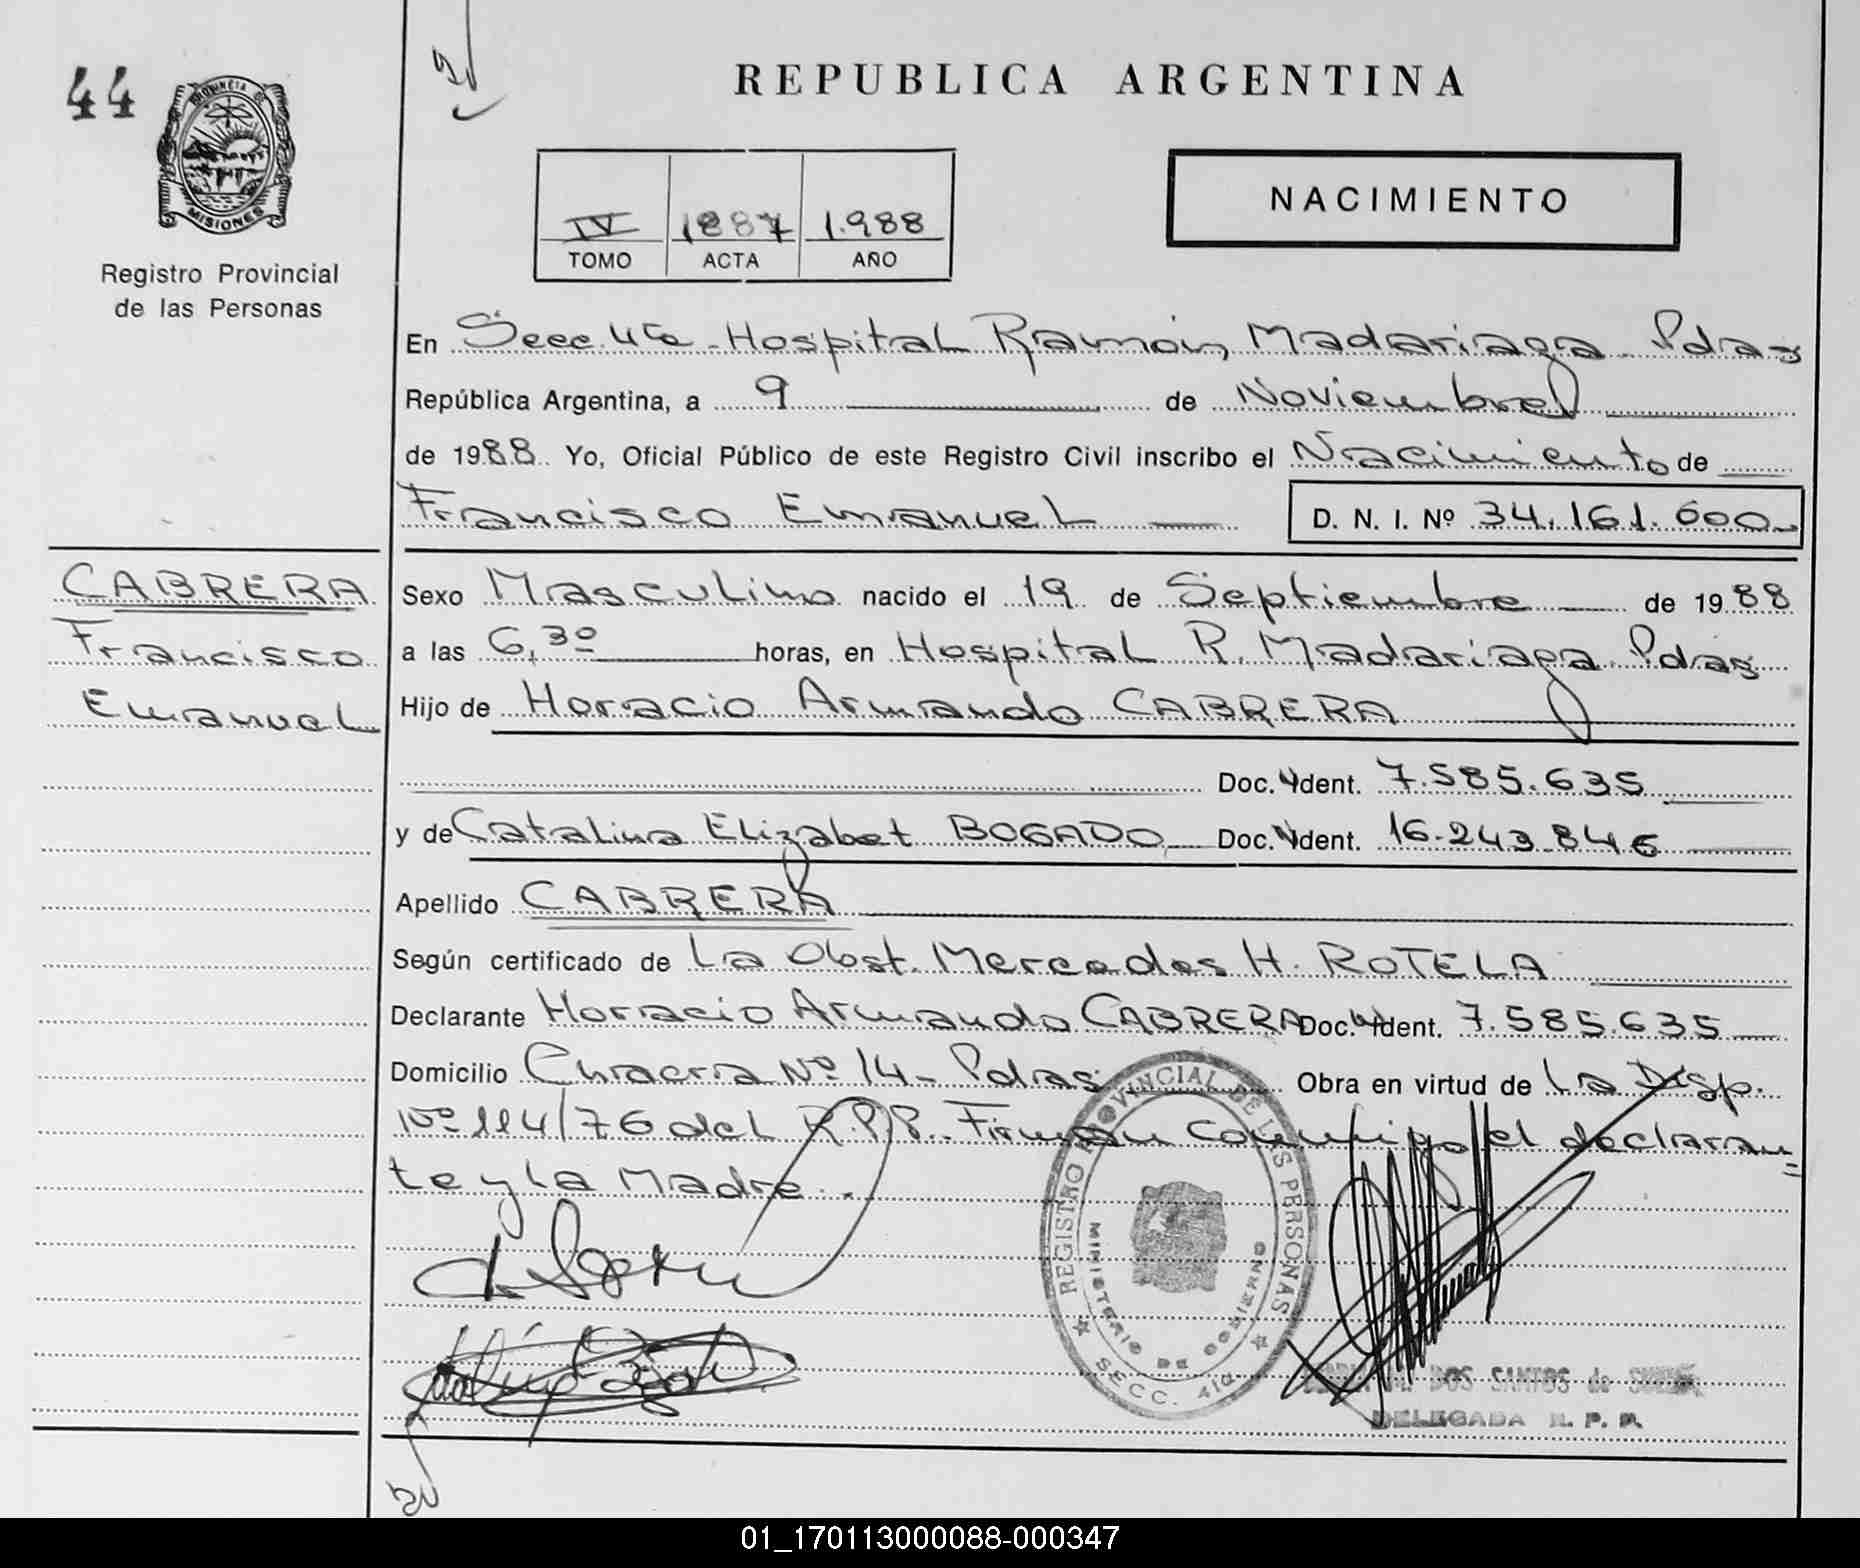 44
PROVINCIA DE
MISIONES
Registro Provincial
de las Personas
REPUBLICA ARGENTINA
IV 1887 1.988
TOMO ACTA AÑO
NACIMIENTO
En Secc. 4ta - Hospital Ramón Madariaga Pdas
República Argentina, a 9 de Noviembre
de 1988. Yo, Oficial Público de este Registro Civil inscribo el Nacimiento de
Francisco Emanuel D. N. I. Nº 34.161.600
CABRERA
Francisco
Emanuel
Sexo Masculino nacido el 19 de Septiembre de 1988
a las 6,30 horas, en Hospital R. Madariaga Pdas
Hijo de Horacio Armando CABRERA
Doc. Ident. 7.585.635
y de Catalina Elizabet BOGADO Doc. Ident. 16.243.846
Apellido CABRERA
Según certificado de La Obst. Mercedes H. ROTELA
Declarante Horacio Armando CABRERA Doc. Ident. 7.585.635
Domicilio Chacra Nº 14 - Pdas Obra en virtud de La Disp.
Nº 114/76 del R.P.P. Firman conmigo el declaran=
te y la Madre.
REGISTRO PROVINCIAL DE LAS PERSONAS
MINISTERIO DE GOBIERNO
SECC. 4ta
DOS SANTOS de
DELEGADA R. P. P.
01_170113000088-000347